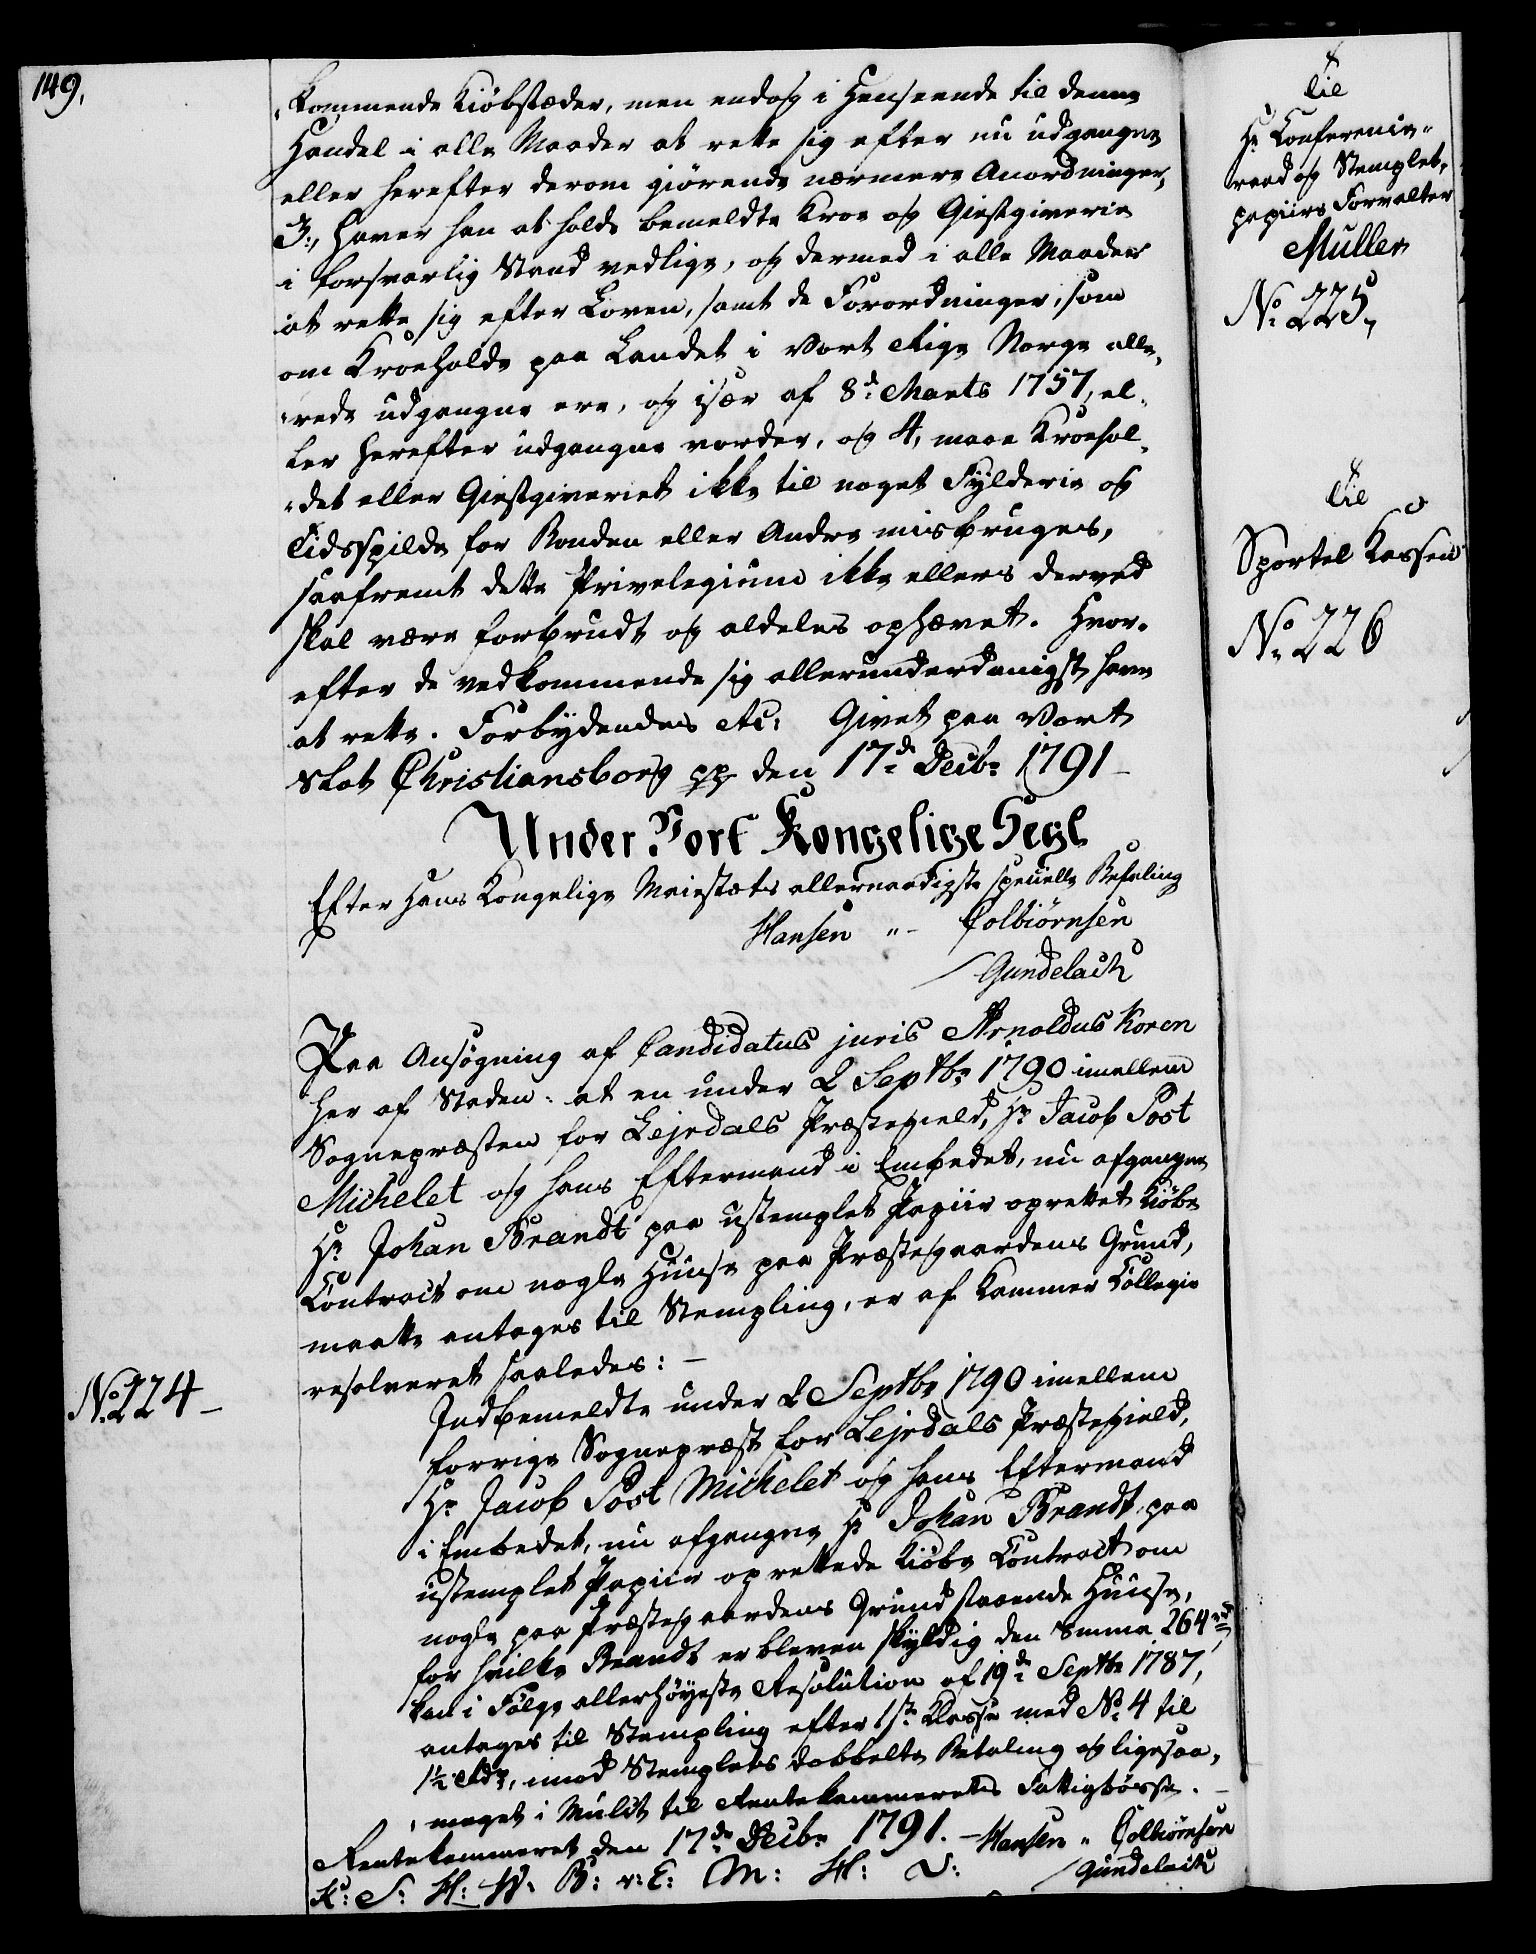 149.
kommende Kiöbstæder, men endog i Henseende til denne
Handel i alle Maader at rette sig efter nu udgangne
eller herefter derom giörende nærmere Anordninger,
3., haver han at holde bemeldte Kroe og Giestgiverie
i forsvarlig Stand vedlige, og dermed i alle Maader
at rette sig efter Loven, samt de Forordninger, som
om Kroehold paa Landet i Vort Rige Norge alle-
rede udgangne ere, og især af 8de Marts 1757, el-
ler herefter udgangne vorder, og 4, maae Kroehol-
det eller Giestgiveriet ikke til noget Fylderie og
Tidsspilde for Bonden eller Andre misbruges,
saafremt dette Privelegium ikke ellers derved
skal være forbrudt og aldeles ophævet. Hvor-
efter de vedkommende sig allerunderdanigst have
at rette. Forbydendes etc: Givet paa Vort
Slot Christiansborg pp den 17de Decbr 1791
Under Vort Kongelige Segl
Efter Hans Kongelige Maiestæts allernaadigste specielle Befaling
Hansen " Colbiörnsen
/Gundelach
Paa Ansögning af Candidatus juris Arnoldus Koren
her af Staden: at en under 2 Septbr 1790 imellem
Sognepræsten for Lejrdals Præstegield, Hr Jacob Post
Michelet og hans Eftermand i Embedet, nu afgangne
Hr Johan Brandt paa ustemplet Papiir oprettet Kiöbe
Contract om nogle Huuse paa Præstegaardens Grund,
maatte antages til Stempling, er af Kammer Collegio
resolveret saaledes: –
No 224
Indbemeldte under 2 Septbr 1790 imellem
forrige Sognepræst for Lejrdals Præstegield,
Hr Jacob Post Michelet og hans Eftermand
i Embedet, nu afgangne Hr Johan Brandt, paa
ustemplet Papiir oprettede Kiöbe Contract om
nogle paa Præstegaardens Grund staaende Huuse,
for hvilke Brandt er bleven skyldig den Summa 264 rd,
kan i Fölge allerhöyeste Resolution af 19de Septbr 1787,
antages til Stempling efter 1ste Klasse med No 4 til
1½ Rdr, imod Stemplets dobbelte Betaling og ligesaa-
meget i Mulct til Rentekammerets Fattigbösse. –
Rentekammeret den 17de Decbr 1791. – Hansen " Colbiörnsen
/Gundelach
Til
Hr Conferenice-
raad og Stemplet-
papiirs Forvalter
Müller
No 225,
Til
Sportel Kassen
No 226